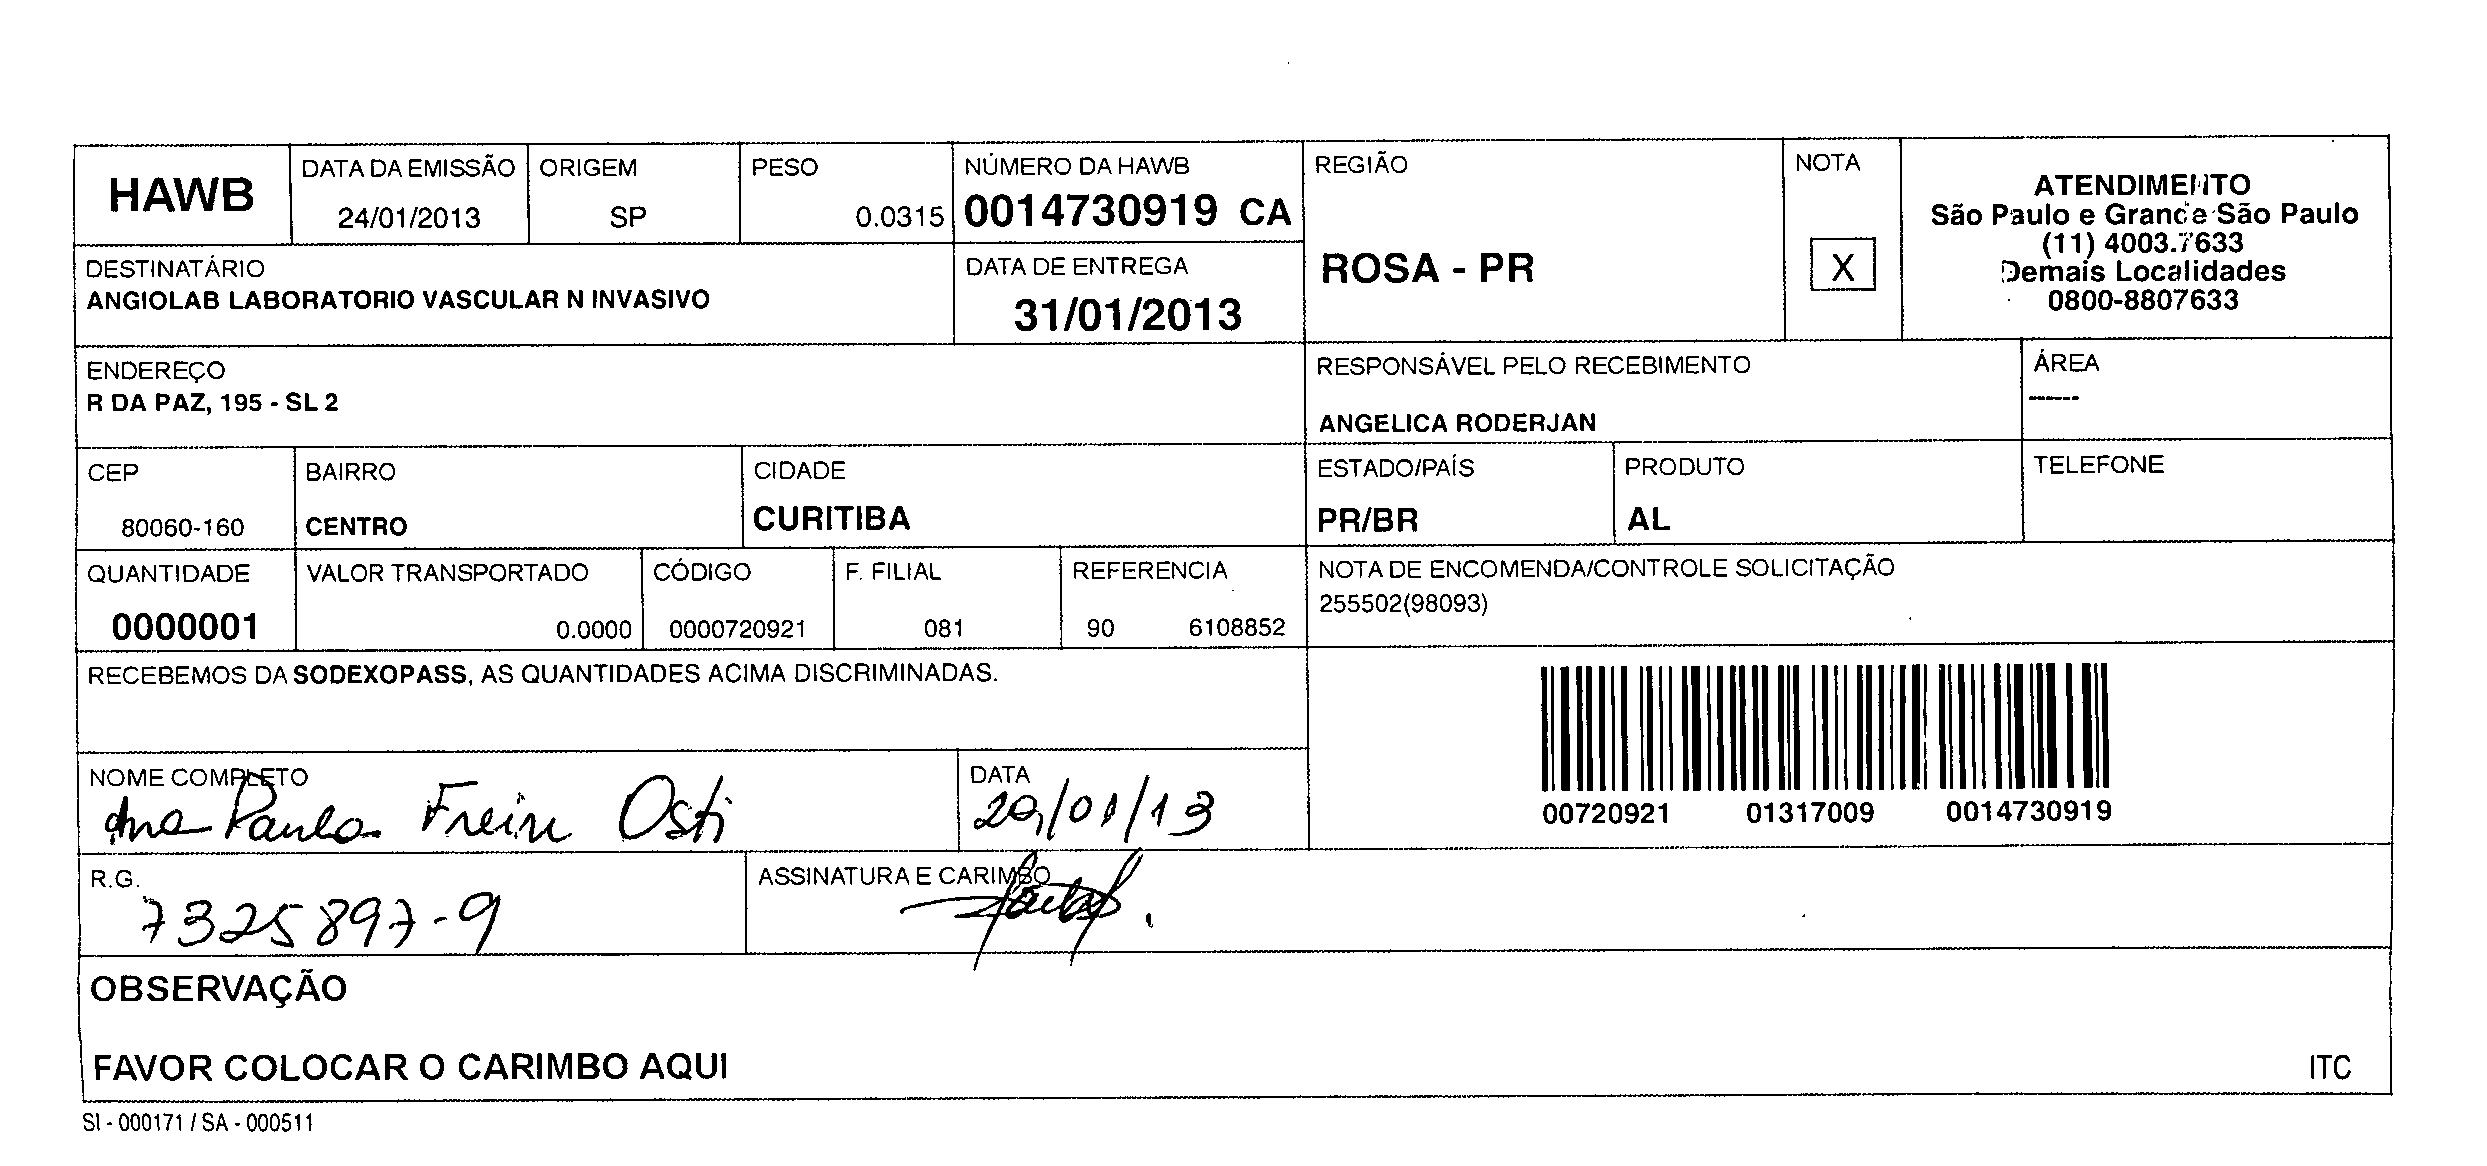 HAWB
DATA DA EMISSÃO
24/01/2013
ORIGEM
SP
PESO
0.0315
NÚMERO DA HAWB
0014730919 CA
REGIÃO
ROSA - PR
NOTA
X
ATENDIMENTO
São Paulo e Grande São Paulo
(11) 4003.7633
Demais Localidades
0800-8807633
DESTINATÁRIO
ANGIOLAB LABORATORIO VASCULAR N INVASIVO
DATA DE ENTREGA
31/01/2013
ENDEREÇO
R DA PAZ, 195 - SL 2
RESPONSÁVEL PELO RECEBIMENTO
ANGELICA RODERJAN
ÁREA
------
CEP
80060-160
BAIRRO
CENTRO
CIDADE
CURITIBA
ESTADO/PAÍS
PR/BR
PRODUTO
AL
TELEFONE
QUANTIDADE
0000001
VALOR TRANSPORTADO
0.0000
CÓDIGO
0000720921
F. FILIAL
081
REFERENCIA
90 6108852
NOTA DE ENCOMENDA/CONTROLE SOLICITAÇÃO
255502(98093)
RECEBEMOS DA SODEXOPASS, AS QUANTIDADES ACIMA DISCRIMINADAS.
00720921 01317009 0014730919
NOME COMPLETO
Ana Paula Freire Osti
DATA
29/01/13
R.G.
7325897-9
ASSINATURA E CARIMBO
OBSERVAÇÃO
FAVOR COLOCAR O CARIMBO AQUI
ITC
SI - 000171 / SA - 000511